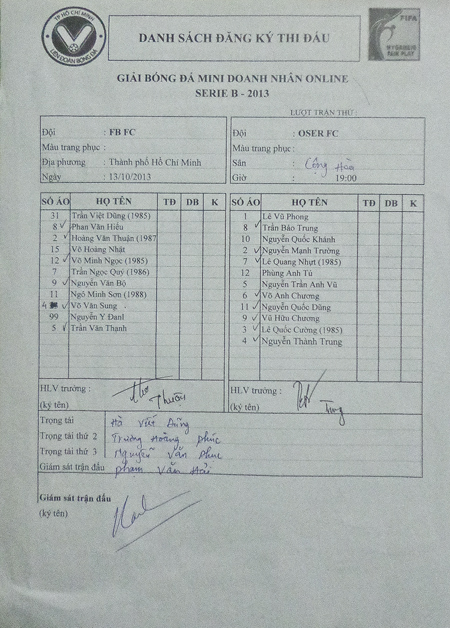 TP HỒ CHÍ MINH
LIÊN ĐOÀN BÓNG ĐÁ
DANH SÁCH ĐĂNG KÝ THI ĐẤU
FIFA
MY GAME IS FAIR PLAY
GIẢI BÓNG ĐÁ MINI DOANH NHÂN ONLINE
SERIE B - 2013
LƯỢT TRẬN THỨ :
Đội : FB FC
Màu trang phục :
Địa phương : Thành phố Hồ Chí Minh
Ngày : 13/10/2013
Đội : OSER FC
Màu trang phục :
Sân : Cộng Hòa
Giờ : 19:00
SỐ ÁO HỌ TÊN TĐ DB K
31 Trần Việt Dũng (1985)
8 ✓ Phan Văn Hiếu
2 ✓ Hoàng Văn Thuận (1987
15 Võ Hoàng Nhật
12 ✓ Võ Minh Ngọc (1985)
7 Trần Ngọc Quý (1986)
9 ✓ Nguyễn Văn Bộ
11 Ngô Minh Sơn (1988)
4 ✓ Võ Văn Sung
99 Nguyễn Y Đanl
5 ✓ Trần Văn Thạnh
SỐ ÁO HỌ TÊN TĐ DB K
1 Lê Vũ Phong
8 ✓ Trần Bảo Trung
10 Nguyễn Quốc Khánh
2 ✓ Nguyễn Mạnh Trường
7 ✓ Lê Quang Nhựt (1985)
12 Phùng Anh Tú
5 Nguyễn Trần Anh Vũ
6 ✓ Võ Anh Chương
11 ✓ Nguyễn Quốc Dũng
9 ✓ Vũ Hữu Chương
3 ✓ Lê Quốc Cường (1985)
4 ✓ Nguyễn Thành Trung
HLV trưởng :
(ký tên) Thuận
HLV trưởng :
(ký tên) Tùng
Trọng tài Hà Viết Dũng
Trọng tài thứ 2 Trương Hoàng Phúc
Trọng tài thứ 3 Nguyễn Văn Phúc
Giám sát trận đấu Phạm Văn Hải
Giám sát trận đấu
(ký tên)